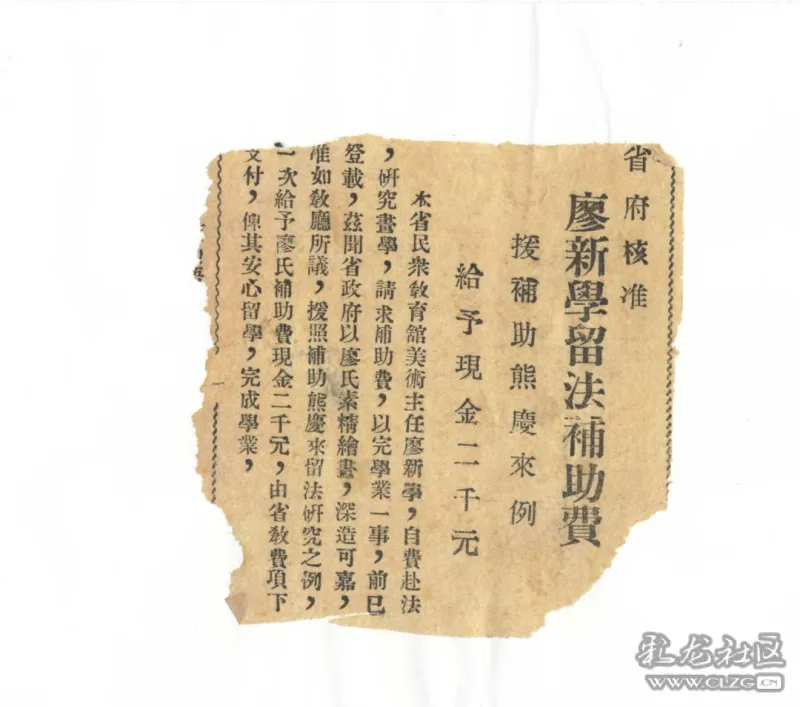 省府核准
廖新學留法補助費
援補助熊慶來例
給予現金二千元
本省民衆敎育館美術主任廖新學，自費赴法
，研究畫學，請求補助費，以完學業一事，前已
登載，茲聞省政府以廖氏素精繪畫，深造可嘉，
准如敎廳所議，援照補助熊慶來留法研究之例，
一次給予廖氏補助費現金二千元，由省敎費項下
支付，俾其安心留學，完成學業，
乳龙社区
WWW.CLZG.CN